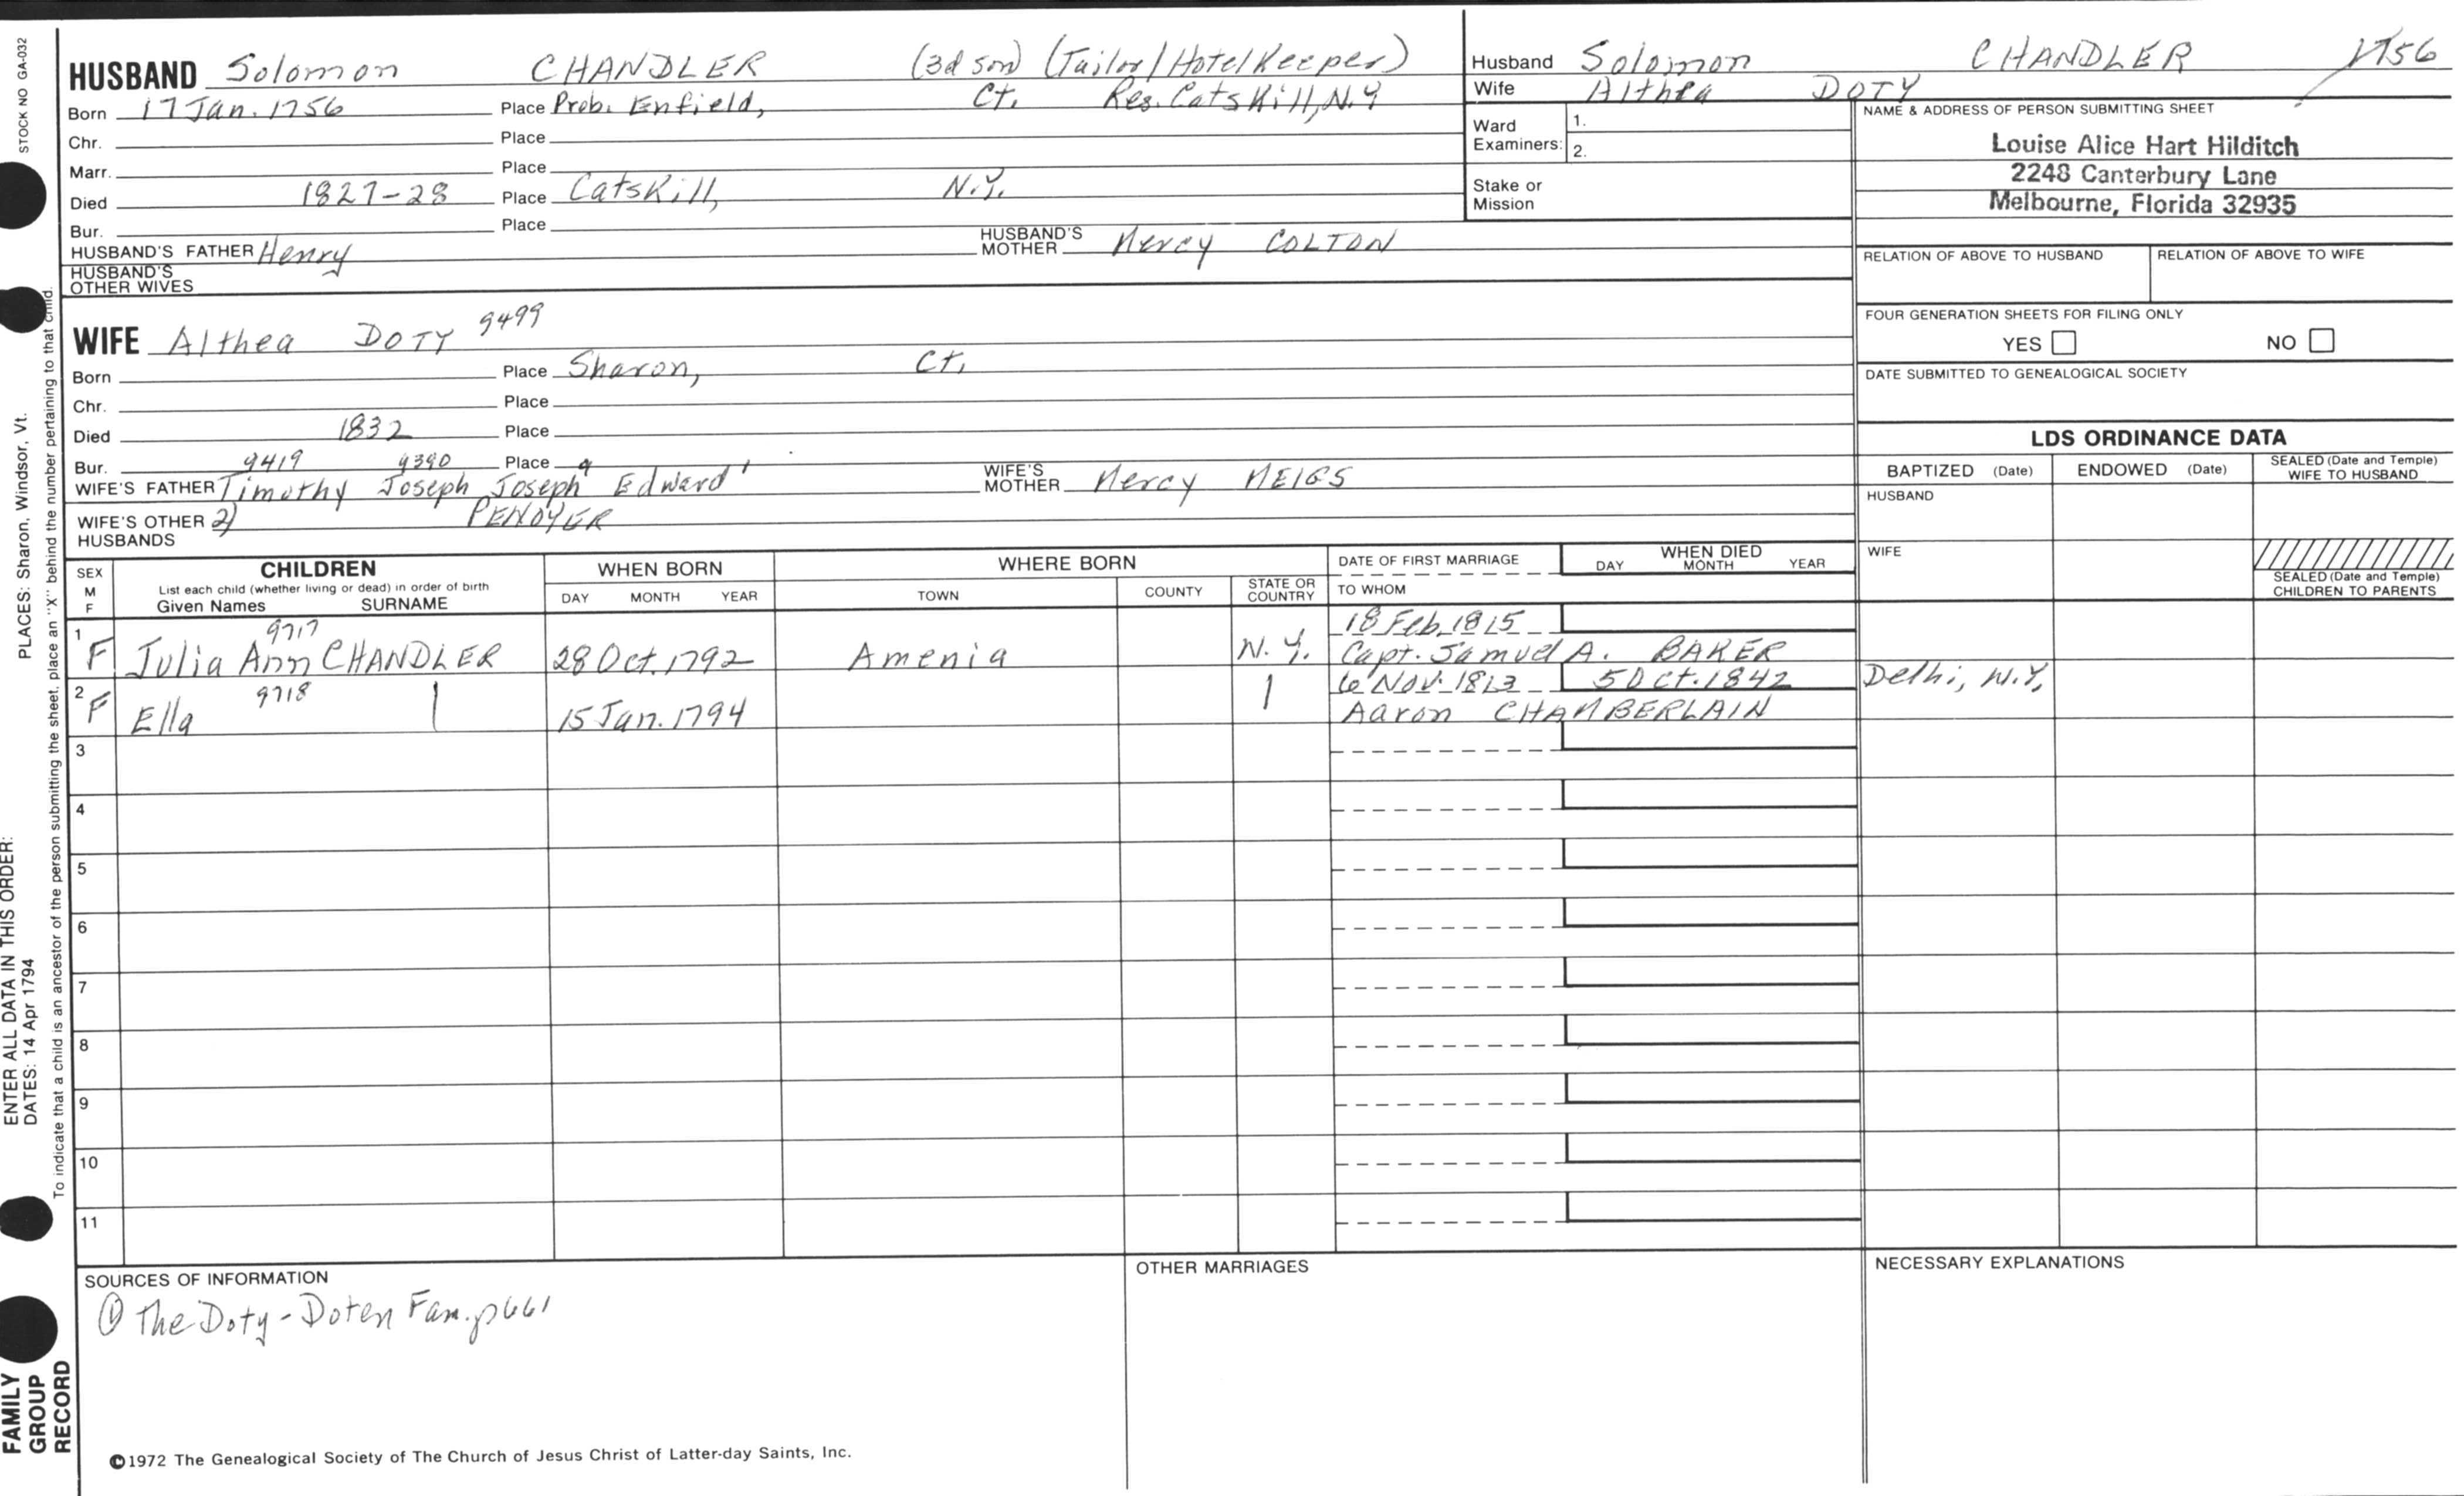 STOCK NO GA-032
HUSBAND Solomon CHANDLER (3d son) (Tailor/HotelKeeper)
Born 17 Jan. 1756 Place Prob. Enfield, Ct. Res. Catskill, N.Y
Chr. Place
Marr. Place
Died 1827-28 Place Catskill, N.Y.
Bur. Place
HUSBAND'S FATHER Henry HUSBAND'S MOTHER Mercy COLTON
HUSBAND'S OTHER WIVES
Husband Solomon CHANDLER 1756
Wife Althea DOTY
Ward Examiners: 1.
2.
Stake or Mission
NAME & ADDRESS OF PERSON SUBMITTING SHEET
Louise Alice Hart Hilditch
2248 Canterbury Lane
Melbourne, Florida 32935
RELATION OF ABOVE TO HUSBAND RELATION OF ABOVE TO WIFE
FOUR GENERATION SHEETS FOR FILING ONLY
YES NO
DATE SUBMITTED TO GENEALOGICAL SOCIETY
WIFE Althea DOTY 9499
Born Place Sharon, Ct.
Chr. Place
Died 1832 Place
Bur. 9419 9390 Place
WIFE'S FATHER Timothy Joseph Joseph Edward WIFE'S MOTHER Mercy MEIGS
WIFE'S OTHER HUSBANDS 2) PENOYER
LDS ORDINANCE DATA
BAPTIZED (Date) ENDOWED (Date) SEALED (Date and Temple) WIFE TO HUSBAND
HUSBAND
WIFE
SEALED (Date and Temple) CHILDREN TO PARENTS
SEX M F
CHILDREN
List each child (whether living or dead) in order of birth
Given Names SURNAME
WHEN BORN
DAY MONTH YEAR
WHERE BORN
TOWN COUNTY STATE OR COUNTRY
DATE OF FIRST MARRIAGE
TO WHOM
WHEN DIED
DAY MONTH YEAR
9717 18 Feb. 1815
1 F Julia Ann CHANDLER 28 Oct. 1792 Amenia N.Y. Capt. Samuel A. BAKER
9718 6 Nov. 1813 5 Oct. 1842 Delhi, N.Y.
2 F Ella 15 Jan. 1794 Aaron CHAMBERLAIN
3
4
5
6
7
8
9
10
11
SOURCES OF INFORMATION
① The Doty-Doten Fam. p661
OTHER MARRIAGES
NECESSARY EXPLANATIONS
©1972 The Genealogical Society of The Church of Jesus Christ of Latter-day Saints, Inc.
FAMILY GROUP RECORD
ENTER ALL DATA IN THIS ORDER:
DATES: 14 Apr 1794
PLACES: Sharon, Windsor, Vt.
To indicate that a child is an ancestor of the person submitting the sheet, place an "X" behind the number pertaining to that child.